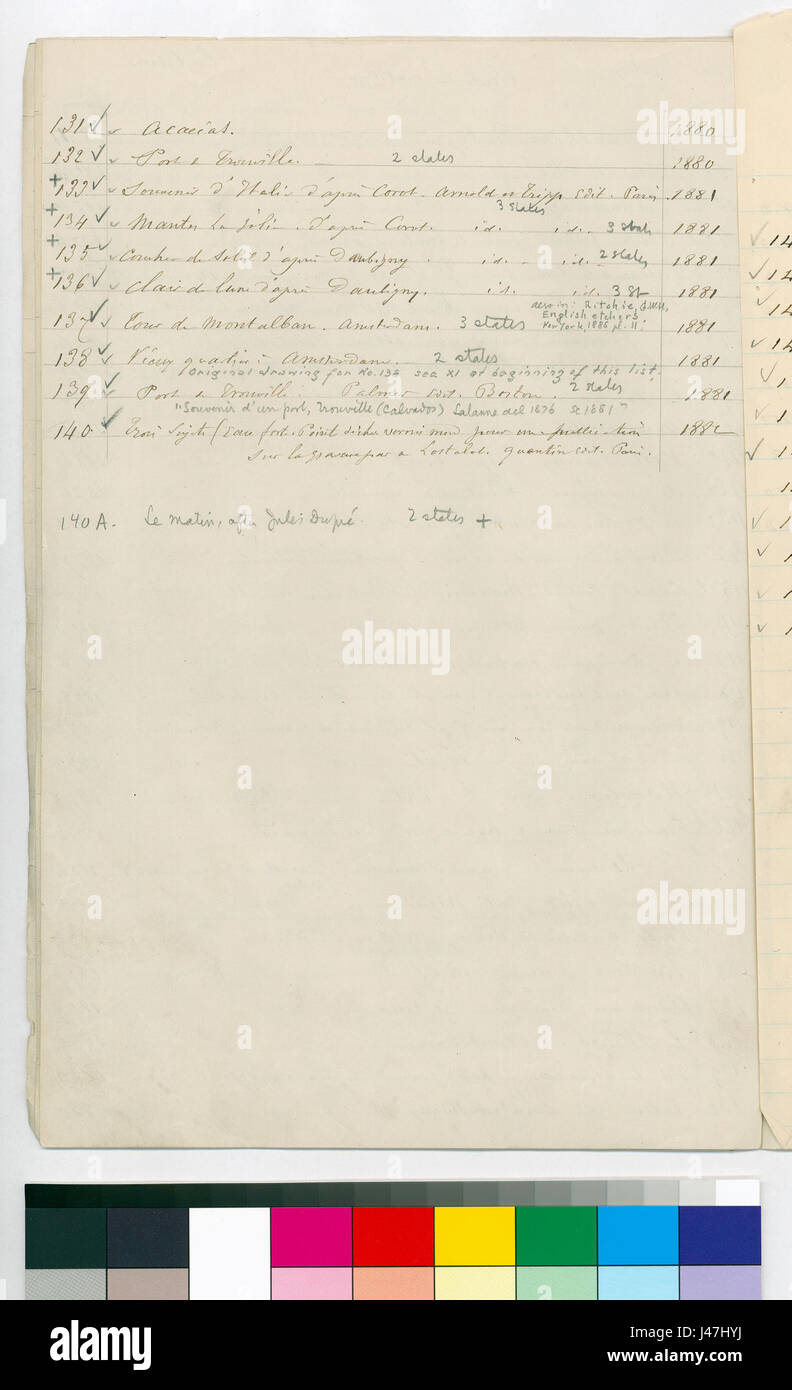 131 ✓ ✓ Acacias. 1880
132 ✓ ✓ Port de Trouville. 2 states 1880
+ 133 ✓ Souvenir d'Italie d'après Corot. Arnold et Tripp edit. Paris. 1881
3 states
+ 134 ✓ Mantes La Jolie. d'après Corot. id. id. 3 stats 1881
+ 135 ✓ Coucher de Soleil d'après Daubigny. id. id. 2 states 1881
+ 136 ✓ Clair de lune d'après Daubigny. id. id. 3 st 1881
also in: Ritchie, G.W.H,
English etchers
New York, 1885 pl. 11.
137 ✓ Tour de Montalban. Amsterdam. 3 states 1881
138 ✓ Vieux quartier à Amsterdam. 2 states 1881
Original drawing for No. see XI at beginning of this list.
139 ✓ Port de Trouville. Palmer edit. Boston. 2 states 1881
"Souvenir d'un port, Trouville (Calvados) Lalanne del 1876 sc 1881"
140 ✓ Trois Sujets (Eau forte. Point sèche vernis mou pour une publication 1882
sur la gravure par de Lostalot. quantin edit. Paris.
140 A. Le Matin, after Jules Dupré. 2 states +
✓ 14
✓ 14
14
✓ 14
✓ 1
✓ 1
✓ 1
✓ 1
✓ 1
✓ 1
✓ 1
alamy
alamy
alamy
alamy
alamy
a
a
a
a
a
a
a
a
a
alamy
Image ID: J47HYJ
www.alamy.com